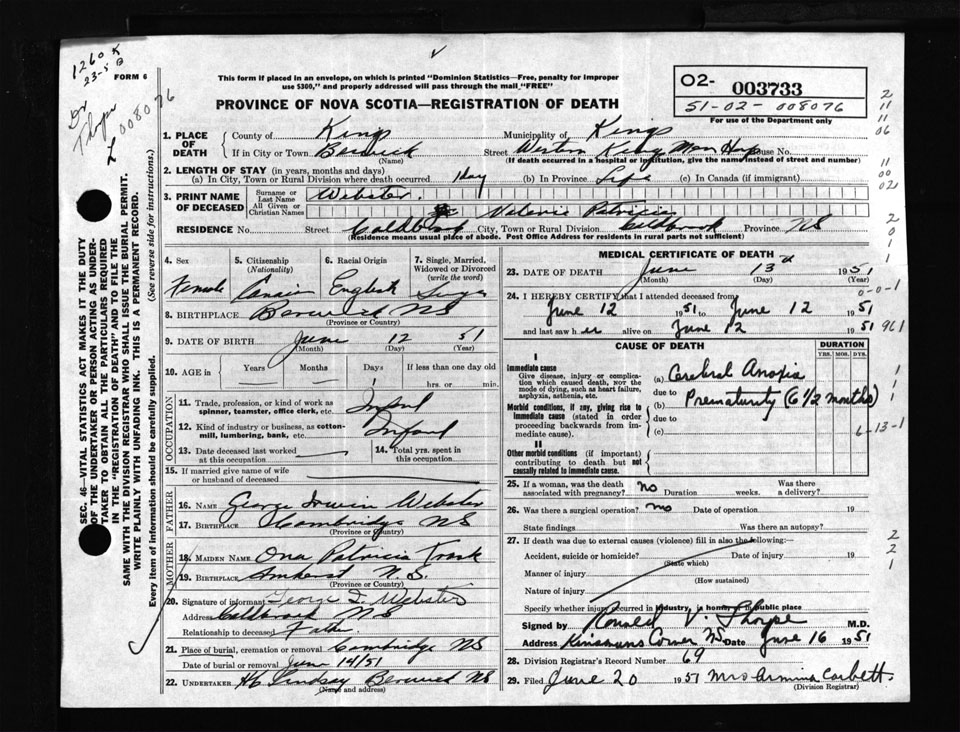 1260 K
23-5 B
FORM 6
Dr
Thorpe
L 008076
This form if placed in an envelope, on which is printed "Dominion Statistics—Free, penalty for improper
use $300," and properly addressed will pass through the mail "FREE"
PROVINCE OF NOVA SCOTIA—REGISTRATION OF DEATH
02- 003733
51-02- 008076
For use of the Department only
1. PLACE OF DEATH
County of Kings Municipality of Kings
If in City or Town Berwick Street Western Kings Mem Hosp House No.
(Name) (If death occurred in a hospital or institution, give the name instead of street and number)
2. LENGTH OF STAY (in years, months and days)
(a) In City, Town or Rural Division where death occurred 1 day (b) In Province Life (c) In Canada (if immigrant)
3. PRINT NAME OF DECEASED
Surname or Last Name Webster.
All Given or Christian Names Valerie Patricia
RESIDENCE No. Street Coldbrook City, Town or Rural Division Coldbrook Province NS
(Residence means usual place of abode. Post Office Address for residents in rural parts not sufficient)
4. Sex Female
5. Citizenship (Nationality)
6. Racial Origin English
7. Single, Married, Widowed or Divorced (write the word) Single
8. BIRTHPLACE Berwick NS
(Province or Country)
9. DATE OF BIRTH June 12 51
(Month) (Day) (Year)
10. AGE in Years Months Days 1 If less than one day old
hrs. or min.
OCCUPATION
11. Trade, profession, or kind of work as spinner, teamster, office clerk, etc. Infant
12. Kind of industry or business, as cotton-mill, lumbering, bank, etc. Infant
13. Date deceased last worked at this occupation
14. Total yrs. spent in this occupation
15. If married give name of wife or husband of deceased
FATHER
16. NAME George Irwin Webster
17. BIRTHPLACE Cambridge NS
(Province or Country)
MOTHER
18. MAIDEN NAME Ona Patricia Trask
19. BIRTHPLACE Amherst N.S.
(Province or Country)
20. Signature of informant George I. Webster
Address Coldbrook NS
Relationship to deceased Father
21. Place of burial, cremation or removal Cambridge NS
Date of burial or removal June 14/51
22. UNDERTAKER Lindsay Berwick NS
(Name and address)
MEDICAL CERTIFICATE OF DEATH
23. DATE OF DEATH June 13th 1951
(Month) (Day) (Year)
24. I HEREBY CERTIFY that I attended deceased from
June 12 1951 to June 12 1951
and last saw her alive on June 12 1951
CAUSE OF DEATH
DURATION
YRS. MOS. DYS.
I
Immediate cause
Give disease, injury or complication which caused death, nor the mode of dying, such as heart failure, asphyxia, asthenia, etc.
(a) Cerebral Anoxia
due to
Morbid conditions, if any, giving rise to immediate cause (stated in order proceeding backwards from immediate cause).
(b) Prematurity (6 1/2 months)
due to
(c)
II
Other morbid conditions (if important) contributing to death but not causally related to immediate cause.
25. If a woman, was the death associated with pregnancy? No Duration weeks. Was there a delivery?
26. Was there a surgical operation? no Date of operation 19
State findings Was there an autopsy?
27. If death was due to external causes (violence) fill in also the following:—
Accident, suicide or homicide? Date of injury 19
(State which)
Manner of injury
(How sustained)
Nature of injury
Specify whether injury occurred in industry, in home or in public place
Signed by Ronald V. Thorpe M.D.
Address Kinsmans Corner NS Date June 16 1951
28. Division Registrar's Record Number 69
29. Filed June 20 1951 Mrs Armina Corbett
(Division Registrar)
SEC. 46—VITAL STATISTICS ACT MAKES IT THE DUTY
OF THE UNDERTAKER OR PERSON ACTING AS UNDER-
TAKER TO OBTAIN ALL THE PARTICULARS REQUIRED
IN THE "REGISTRATION OF DEATH" AND TO FILE THE
SAME WITH THE DIVISION REGISTRAR WHO SHALL ISSUE THE BURIAL PERMIT.
WRITE PLAINLY WITH UNFADING INK. THIS IS A PERMANENT RECORD.
Every item of information should be carefully supplied. (See reverse side for instructions.)
2
11
11
06
11
00
02
2
0
1
1
0-0-1
961
1
1
1
6-13-1
2
2
1